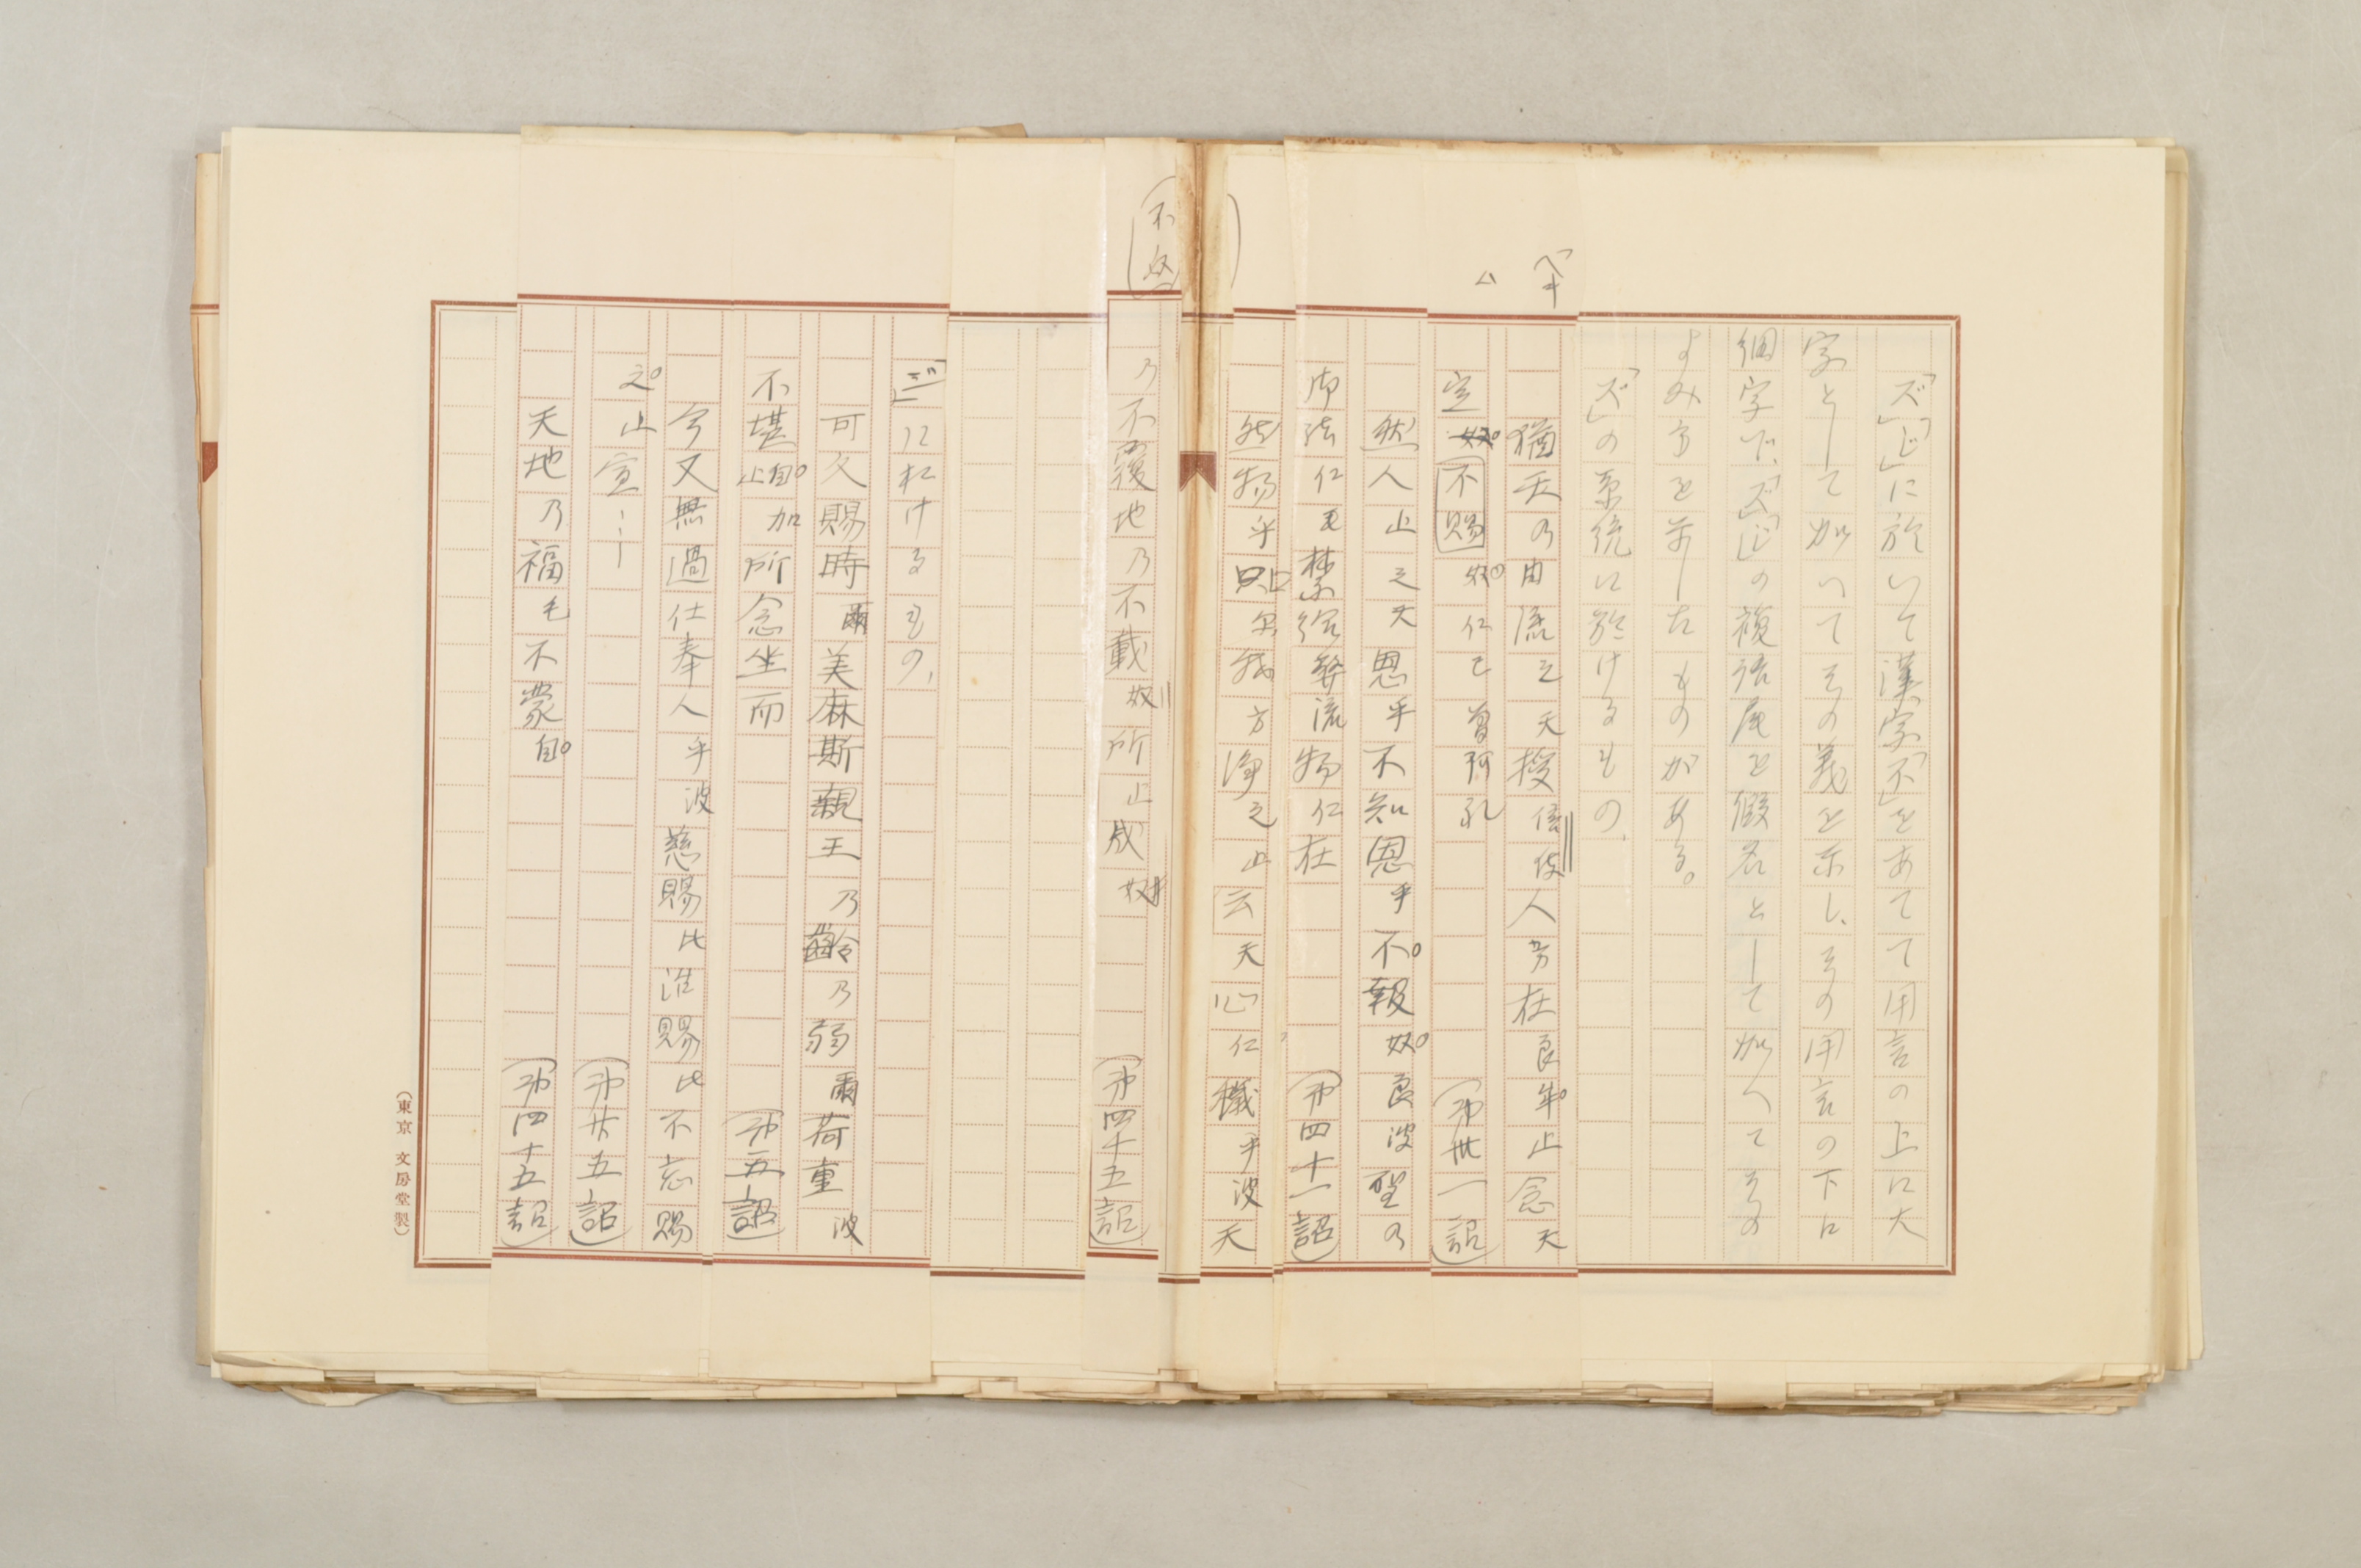 「ズ」「じ」に於いて漢字「不」をあてて用言の上に大
字として加へてその義を示し、その用言の下に
細字で、「ズ」「じ」の複語尾を假名として加へてその
よみ方を示したものがある。
「ズ」の系統に於けるもの、
猶天乃由流之天授倍伎人方在良牟止念天
定奴不賜奴仁己曽阿礼
(第卅一詔)
然人止之天恩乎不知恩乎不報奴良波聖乃
御法仁毛禁給弊流物仁在
(第四十一詔)
然物乎 方浄之止云天心仁穢乎波天
(不奴)
乃不覆地乃不載奴所止成奴
(第四十五詔)
「じ」に於けるもの、
可久賜時爾美麻斯親王乃齢乃弱爾荷重波
不堪自止加所念坐而
(第五詔)
今又無過仕奉人乎波慈賜比 賜比不忘賜
之止宣
(第廿五詔)
天地乃福毛不蒙自
(第四十五詔)
(東京 文房堂製)